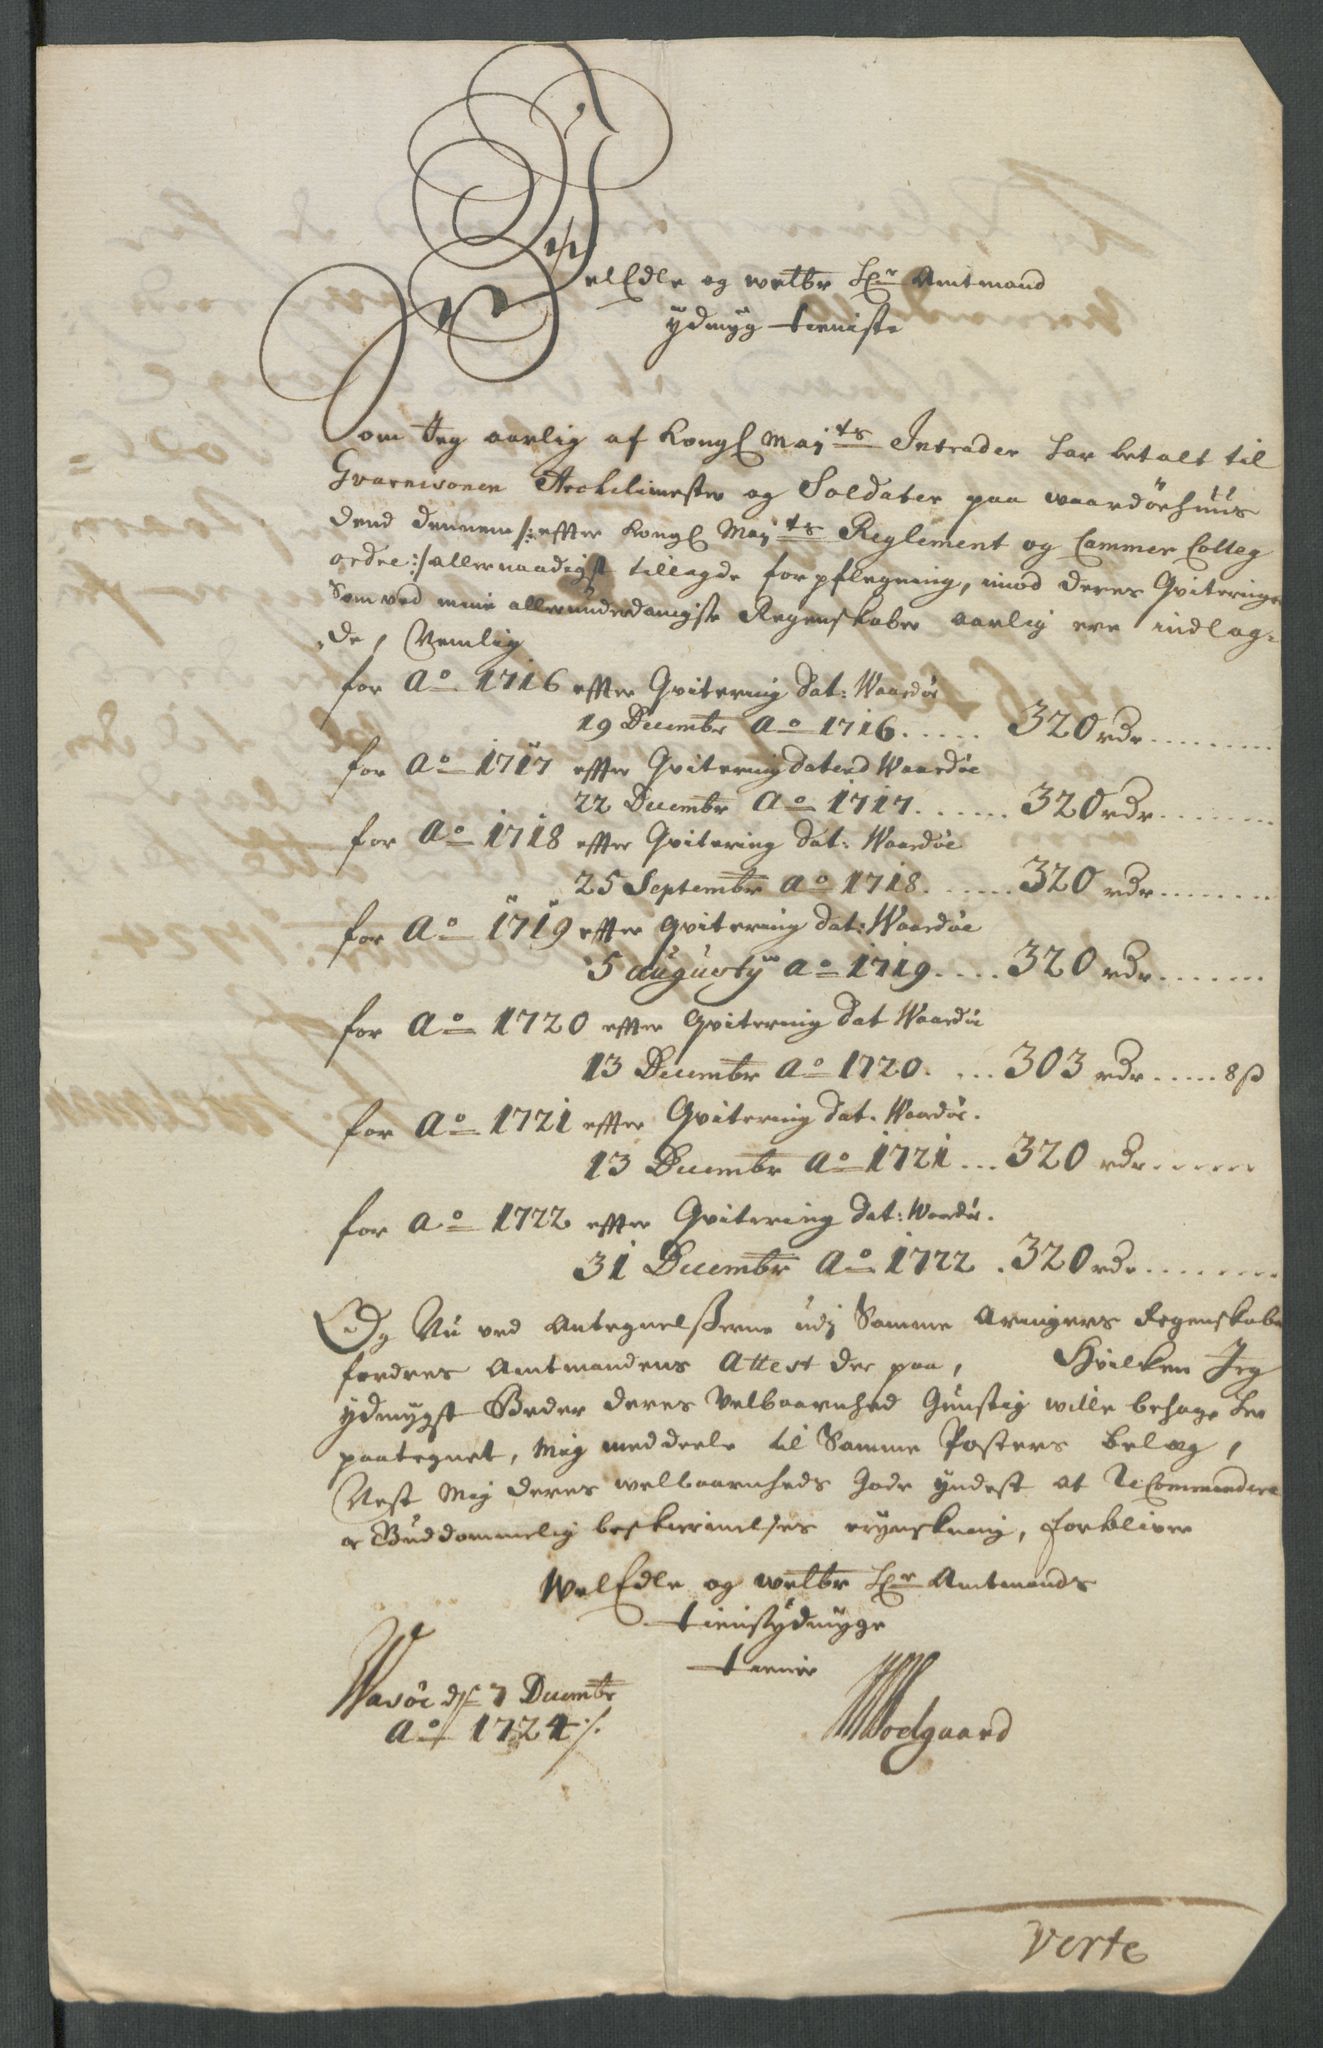 WelEdle og welbr Hr Amtmand
ydmyg tieniste
Som Jeg aarlig af Kongl Mayts Intrader har betalt til
Gvarnisonen Archlimester og Soldater paa waardöehuus
dend dennem /: effter Kongl Mayts Reglement og Cammer Colleg
ordre :/ allernaadigst tillagde forpflegning, imod deres Qviteringer
Som ved mine allerunderdanigste Regenskaber aarlig ere indlag-
de, Nemlig
for Ao 1716 effter Qvitering dat: Waardöe
19 Decembr Ao 1716 ...... 320 rdr ........
for Ao 1717 effter Qvitering daterd Waardöe
22 Decembr Ao 1717 ...... 320 rdr ........
for Ao 1718 effter Qvitering dat: Waardöe
25 Septembr Ao 1718 ...... 320 rdr ........
for Ao 1719 effter Qvitering dat: Waardöe
5 augusty ao 1719 .... 320 rdr .......
for Ao 1720 effter Qvitering dat Waardöe
13 Decembr Ao 1720 .... 303 rdr ..... 8 ß
for Ao 1721 effter Qvitering dat. Waardöe.
13 Decembr Ao 1721 ... 320 rdr ......
for Ao 1722 effter Qvitering dat: Waardöe.
31 Decembr Ao 1722 . 320 rdr .......
Og Nu ved Antegnelsserne udj Samme Aringers Regenskaber
fordres Amtmandens Attest der paa, Hvilken Jeg
ydmygst Beder deres Velbaarnhed Gunstig wille behage her
paategnet, Mig meddeele til Samme Posters belæg,
Nest Mig deres welbaarnheds Gode yndest at ReCommendere
Guddommelig beskiermelses erynskning, forbliver
WelEdle og welbr Hr Amtmands
tienstydmyge
tienner
Wadöe d 7 Decembr
Ao 1724 /.
Wodgaard
Verte